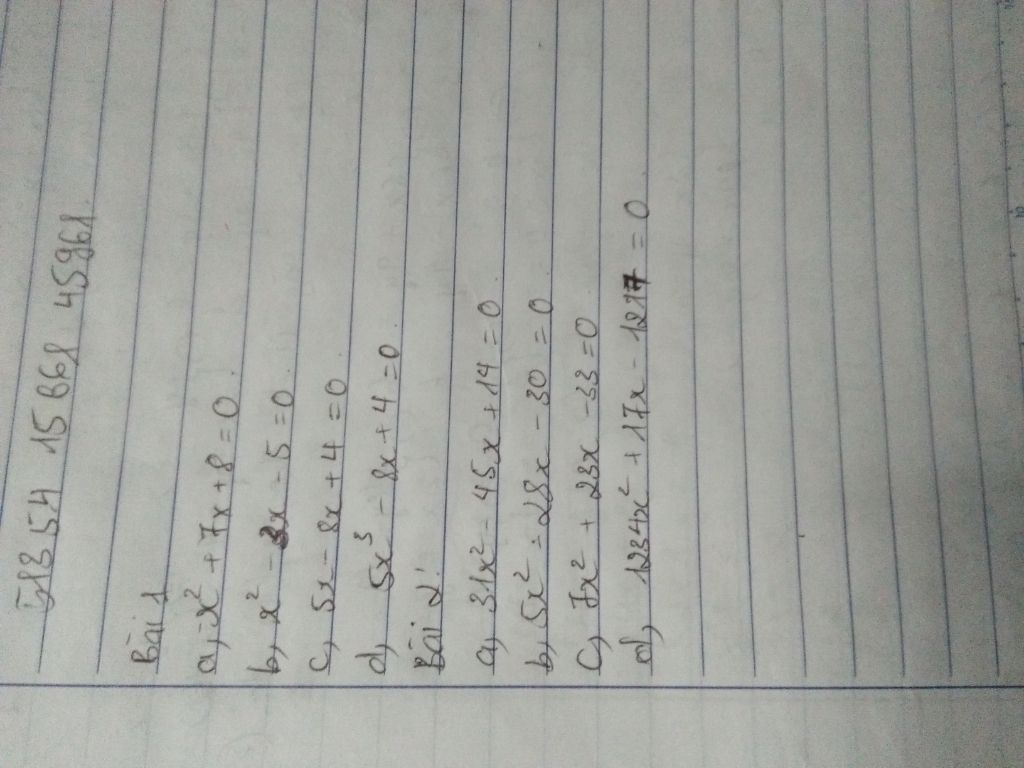 Bài 1
a, x² + 7x + 8 = 0
b, x² - 3x - 5 = 0
c, 5x - 8x + 4 = 0
d, 5x³ - 8x + 4 = 0
Bài 2:
a, 31x² - 45x + 14 = 0
b, 5x² - 28x - 30 = 0
c, 7x² + 23x - 33 = 0
d, 1234x² + 17x - 1217 = 0